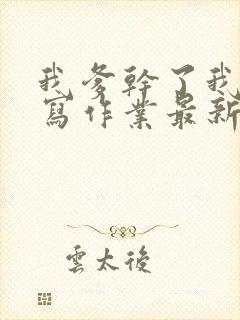 我爹幹了我
寫作業最新
雲太後